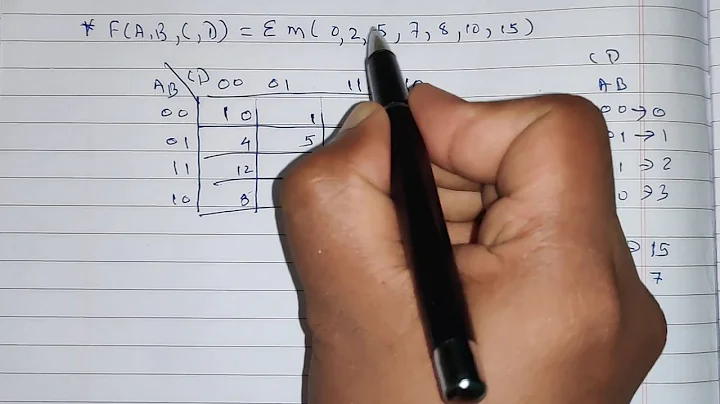 * F(A,B,C,D) = Σ m( 0, 2, 5, 7, 8, 10, 15)
CD
AB 00 01 11 10
00 1 0 1
01 4 5
11 12
10 8
CD
AB
00 → 0
01 → 1
1 → 2
0 → 3
→ 15
7